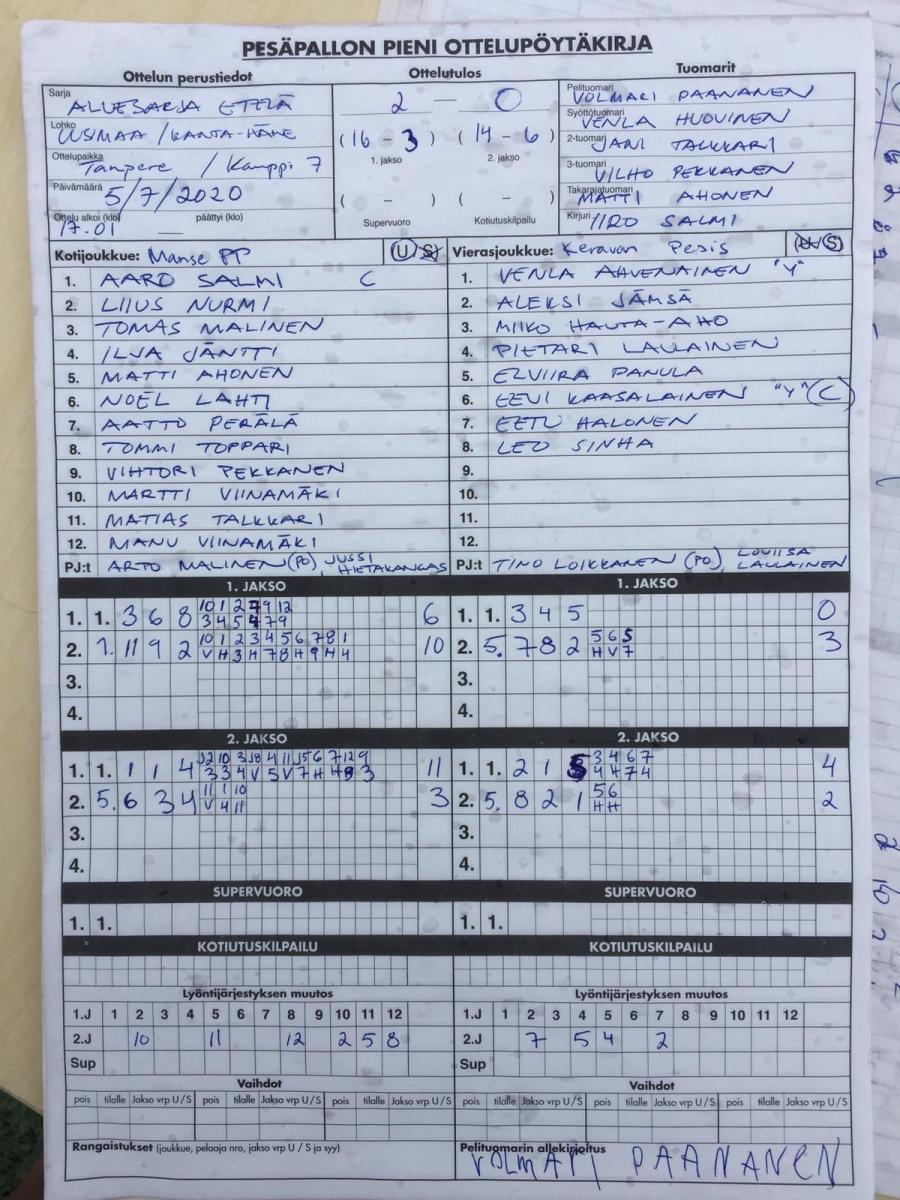 PESÄPALLON PIENI OTTELUPÖYTÄKIRJA
Ottelun perustiedot Ottelutulos Tuomarit
Sarja ALUESARJA ETELÄ
Lohko UUSIMAA / KANTA-HÄME
Ottelupaikka Tampere / Kauppi 7
Päivämäärä 5/7/2020
Ottelu alkoi (klo) 17.01 päättyi (klo) __
2 — 0
(16 - 3) (14 - 6)
1. jakso 2. jakso
( - ) ( - )
Supervuoro Kotiutuskilpailu
Pelituomari VOLMARI PAANANEN
Syöttötuomari VENLA HUOVINEN
2-tuomari JANI TALKKARI
3-tuomari VILHO PEKKANEN
Takarajatuomari MATTI AHONEN
Kirjuri IIRO SALMI
Kotijoukkue: Manse PP U/S
1. AARO SALMI C
2. LIIUS NURMI
3. TOMAS MALINEN
4. ILJA JÄNTTI
5. MATTI AHONEN
6. NOEL LAHTI
7. AATTO PERÄLÄ
8. TOMMI TOPPARI
9. VIHTORI PEKKANEN
10. MARTTI VIINAMÄKI
11. MATIAS TALKKARI
12. MANU VIINAMÄKI
PJ:t ARTO MALINEN (PO), JUSSI HIETAKANGAS
Vierasjoukkue: Keravan Pesis U/S
1. VENLA AHVENAINEN "Y"
2. ALEKSI JÄMSÄ
3. MIIKO HAUTA-AHO
4. PIETARI LAULAINEN
5. ELVIIRA PANULA
6. EEVI KAASALAINEN "Y" C
7. EETU HALONEN
8. LEO SINHA
9.
10.
11.
12.
PJ:t TINO LOIKKANEN (PO), LOVIISA LAULAINEN
1. JAKSO
1. 1. 3 6 8 10 1 2 7 9 12 6
3 4 5 4 7 9
2. 1. 11 9 2 10 1 2 3 4 5 6 7 8 1 10
V H 3 H 7 8 H 9 H 4
3.
4.
1. JAKSO
1. 1. 3 4 5 0
2. 5. 7 8 2 5 6 5 3
H V 7
3.
4.
2. JAKSO
1. 1. 1 1 4 J2 10 3 J8 4 11 J5 6 7 12 9 11
3 3 4 V 5 V 7 H H 9 3
2. 5. 6 3 4 11 1 10 3
V 4 11
3.
4.
2. JAKSO
1. 1. 2 1 5 3 4 6 7 4
4 H 7 4
2. 5. 8 2 1 5 6 2
H H
3.
4.
SUPERVUORO SUPERVUORO
1. 1. 1. 1.
KOTIUTUSKILPAILU KOTIUTUSKILPAILU
Lyöntijärjestyksen muutos
1.J 1 2 3 4 5 6 7 8 9 10 11 12
2.J 10 11 12 2 5 8
Sup
Lyöntijärjestyksen muutos
1.J 1 2 3 4 5 6 7 8 9 10 11 12
2.J 7 5 4 2
Sup
Vaihdot Vaihdot
pois tilalle Jakso vrp U / S pois tilalle Jakso vrp U / S pois tilalle Jakso vrp U / S
pois tilalle Jakso vrp U / S pois tilalle Jakso vrp U / S pois tilalle Jakso vrp U / S
Rangaistukset (joukkue, pelaaja nro, jakso vrp U / S ja syy)
Pelituomarin allekirjoitus
VOLMARI PAANANEN